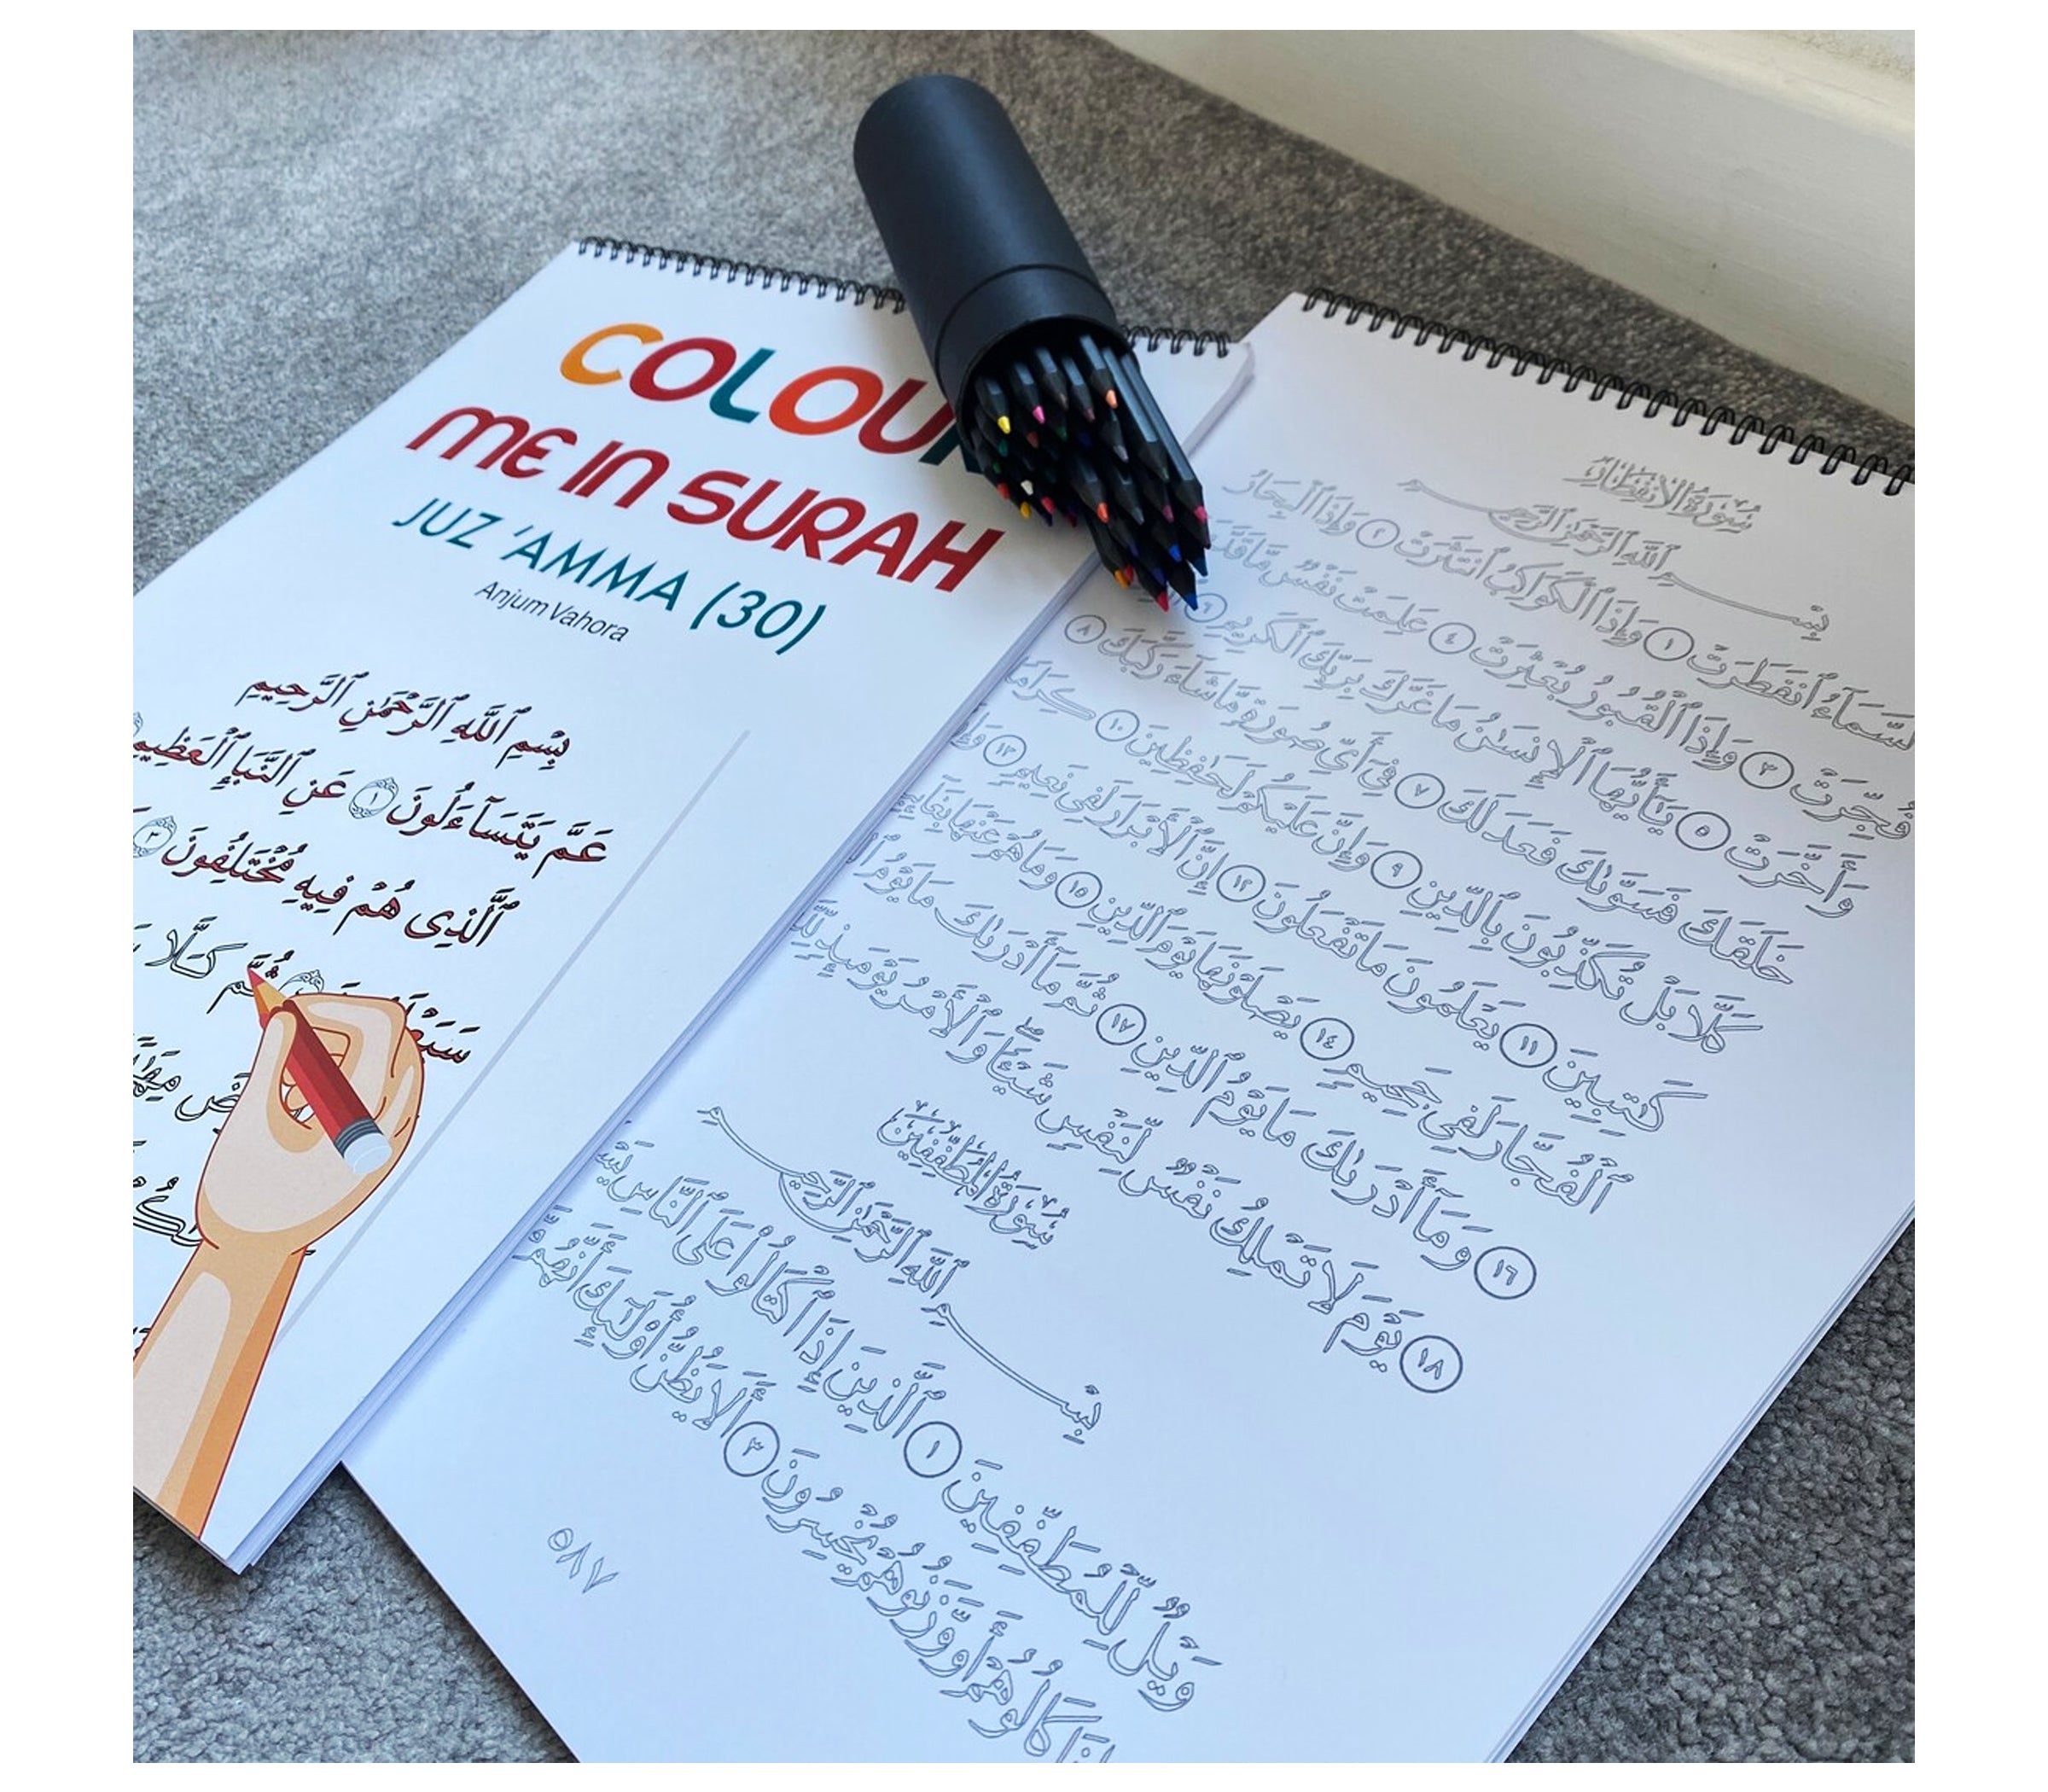 COLOUR
ME IN SURAH
JUZ 'AMMA (30)
Anjum Vahora
بِسْمِ ٱللَّهِ ٱلرَّحْمَٰنِ ٱلرَّحِيمِ
عَمَّ يَتَسَآءَلُونَ ١ عَنِ ٱلنَّبَإِ ٱلْعَظِيمِ
ٱلَّذِى هُمْ فِيهِ مُخْتَلِفُونَ ٣
ثُمَّ كَلَّا
سُورَةُ الانفِطَارِ
بِسْمِ ٱللَّهِ ٱلرَّحْمَٰنِ ٱلرَّحِيمِ
ٱلسَّمَآءُ ٱنفَطَرَتْ ١ وَإِذَا ٱلْكَوَاكِبُ ٱنتَثَرَتْ ٢ وَإِذَا ٱلْبِحَارُ
فُجِّرَتْ ٣ وَإِذَا ٱلْقُبُورُ بُعْثِرَتْ ٤ عَلِمَتْ نَفْسٌ مَّا
وَأَخَّرَتْ ٥ يَٰٓأَيُّهَا ٱلْإِنسَٰنُ مَا غَرَّكَ بِرَبِّكَ ٱلْكَرِيمِ ٦
خَلَقَكَ فَسَوَّىٰكَ فَعَدَلَكَ ٧ فِىٓ أَىِّ صُورَةٍ مَّا شَآءَ رَكَّبَكَ ٨
كَلَّا بَلْ تُكَذِّبُونَ بِٱلدِّينِ ٩ وَإِنَّ عَلَيْكُمْ لَحَٰفِظِينَ ١٠ كِرَامًا
كَٰتِبِينَ ١١ يَعْلَمُونَ مَا تَفْعَلُونَ ١٢ إِنَّ ٱلْأَبْرَارَ لَفِى نَعِيمٍ ١٣
ٱلْفُجَّارَ لَفِى جَحِيمٍ ١٤ يَصْلَوْنَهَا يَوْمَ ٱلدِّينِ ١٥ وَمَا هُمْ عَنْهَا
١٦ وَمَآ أَدْرَىٰكَ مَا يَوْمُ ٱلدِّينِ ١٧ ثُمَّ مَآ أَدْرَىٰكَ مَا يَوْمُ
١٨ يَوْمَ لَا تَمْلِكُ نَفْسٌ لِّنَفْسٍ شَيْـًٔا وَٱلْأَمْرُ يَوْمَئِذٍ
سُورَةُ المُطَفِّفِينَ
بِسْمِ ٱللَّهِ ٱلرَّحْمَٰنِ ٱلرَّحِيمِ
وَيْلٌ لِّلْمُطَفِّفِينَ ١ ٱلَّذِينَ إِذَا ٱكْتَالُوا۟ عَلَى ٱلنَّاسِ
كَالُوهُمْ أَو وَّزَنُوهُمْ يُخْسِرُونَ ٣ أَلَا يَظُنُّ أُو۟لَٰٓئِكَ أَنَّهُم
٥٨٧